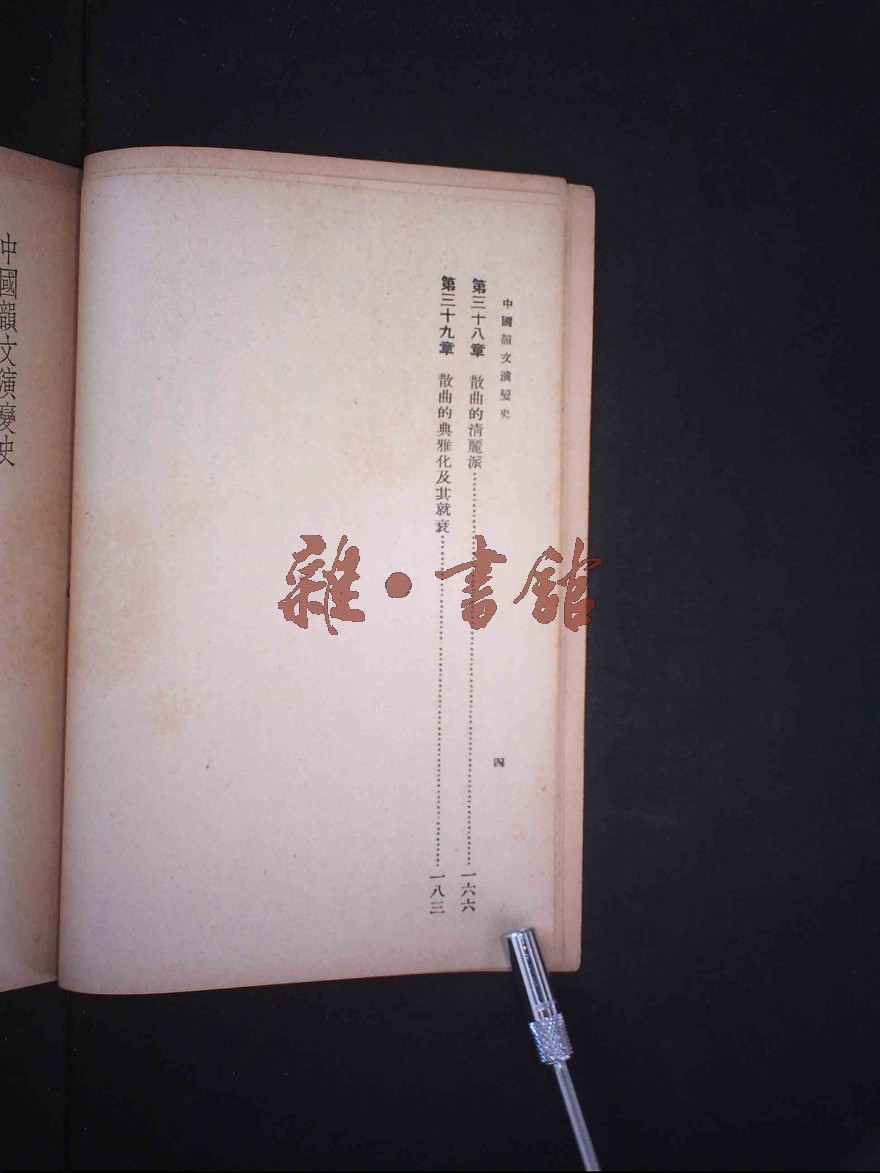 中國韻文演變史
第三十八章 散曲的清麗派……一六六
第三十九章 散曲的典雅化及其就衰……一八三
四
中國韻文演變史
雜·書館